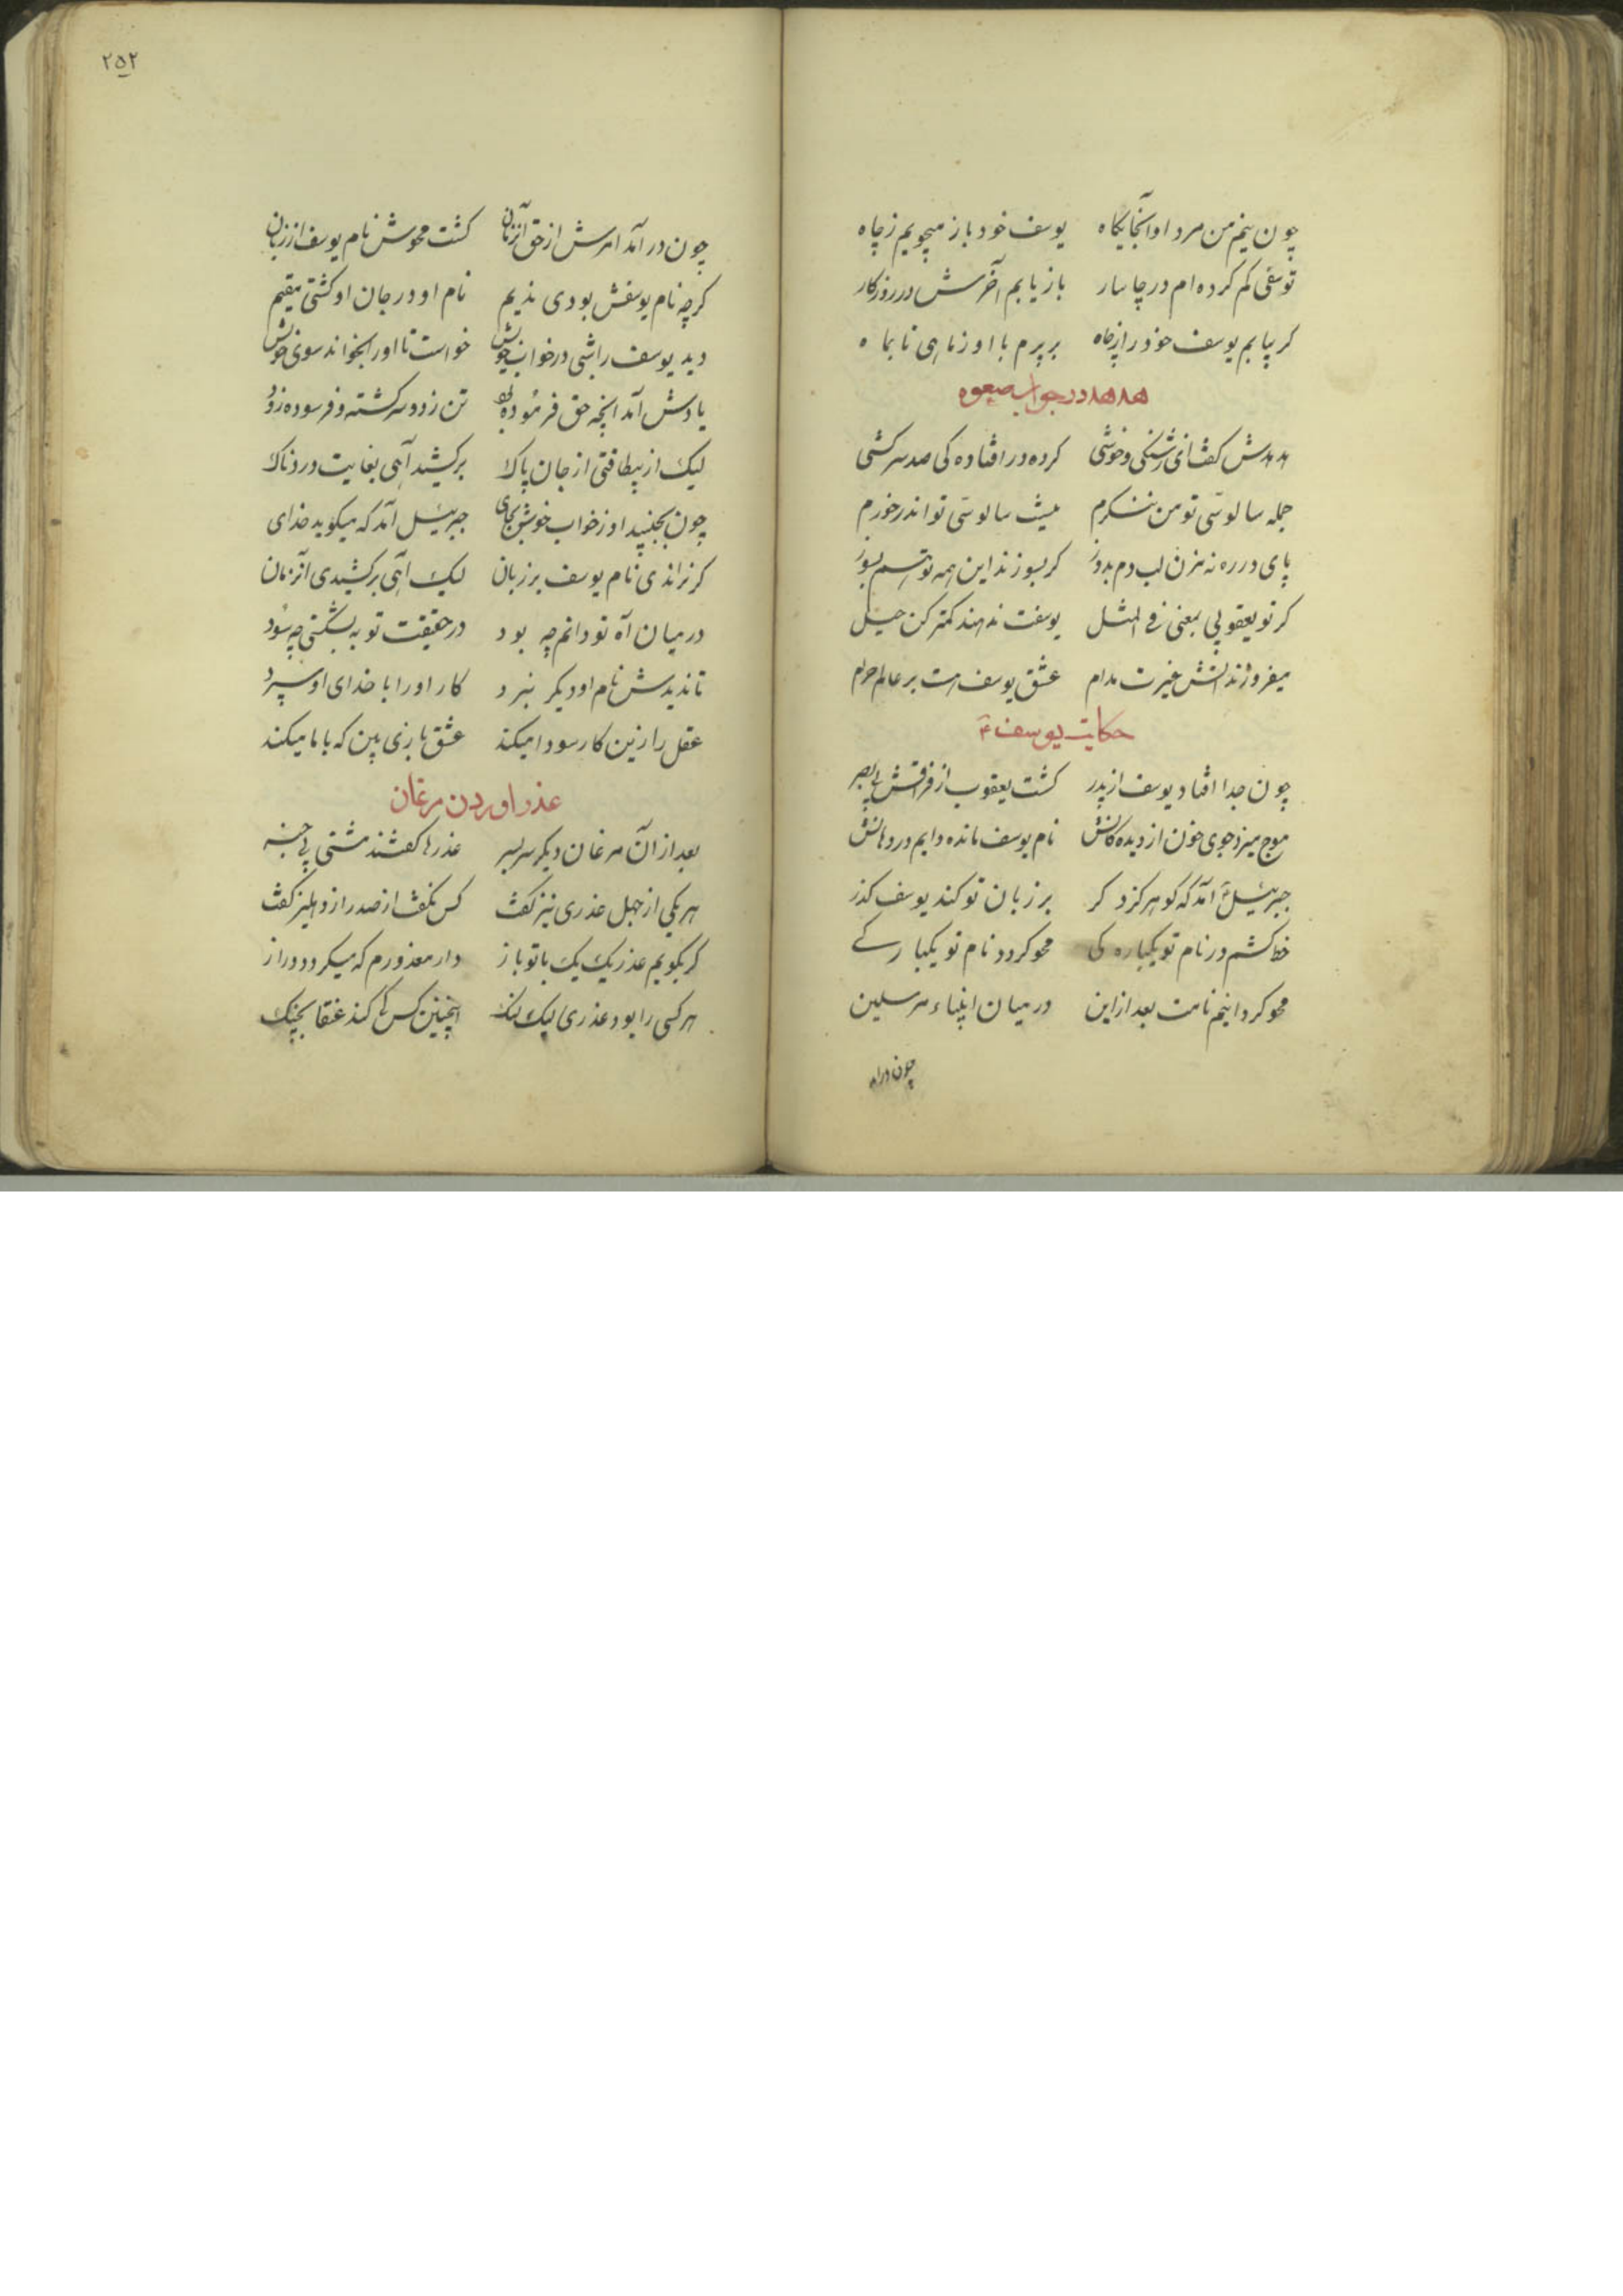 چون نیم من مرد او اینجایگاه یوسف خود باز میجویم ز چاه
یوسفی کم کرده ام در چاسار باز یابم آخرش در روزکار
کر بیابم یوسف خود را ز چاه بر پرم با او ز ماهی تا بماه
هدهد در جواب صعوه
هدهدش کفت ای ز شنکی و خوشی کرده در افتاده کی صد سرکشی
جمله سالوسی تو من ننکرم نیست سالوسی تو اندر خورم
پای در ره نه مزن لب دم بدوز کر بسوزند این همه تو هم بسوز
کر تو یعقوبی بمعنی فی المثل یوسفت ندهند کمتر کن حیل
میفروزد آتش غیرت مدام عشق یوسف هست بر عالم حرام
حکایت یوسف ع
چون جدا افتاد یوسف از پدر کشت یعقوب از فراقش بی بصر
موج میزد جوی خون از دیده کانش نام یوسف مانده دایم در دهانش
جبرئیل آمد که کو هرکز دکر بر زبان تو کند یوسف کذر
خط کشم در نام تو یکباره کی محو کردد نام تو یکبارکی
محو کردانیم نامت بعد ازاین در میان انبیاء مرسلین
چون درامد
۲۵۲
چون در آمد امرش از حق آنزمان کشت محوش نام یوسف از زبان
کرچه نام یوسفش بودی ندیم نام او در جان او کشتی مقیم
دید یوسف را شبی در خواب خویش خواست تا او را بخواند سوی خویش
یادش آمد انچه حق فرموده بود تن زد و سرکشته و فرسوده زود
لیک از بیطاقتی از جان پاک برکشید آهی بغایت دردناک
چون بجنبید او ز خواب خوش بجای جبرئیل آمد که میکوید خدای
کر نراندی نام یوسف بر زبان لیک آهی برکشیدی آنزمان
در میان آه تو دانم چه بود در حقیقت توبه بشکستی چه سود
تا ندیدش نام او دیکر نبرد کار او را با خدای او سپرد
عقل را زین کار سودا میکند عشق بازی بین که با ما میکند
عذر اوردن مرغان
بعد از آن مرغان دیکر سر بسر عذرها کفتند مشتی بی خبر
هر یکی از جهل عذری نیز کفت کس نکفت از صدر از دهلیز کفت
کر بکویم عذر یک یک با تو باز دار معذورم که میکردد دراز
هر کسی را بود عذری لیک لنک اینچنین کس کی کند عنقا بچنک